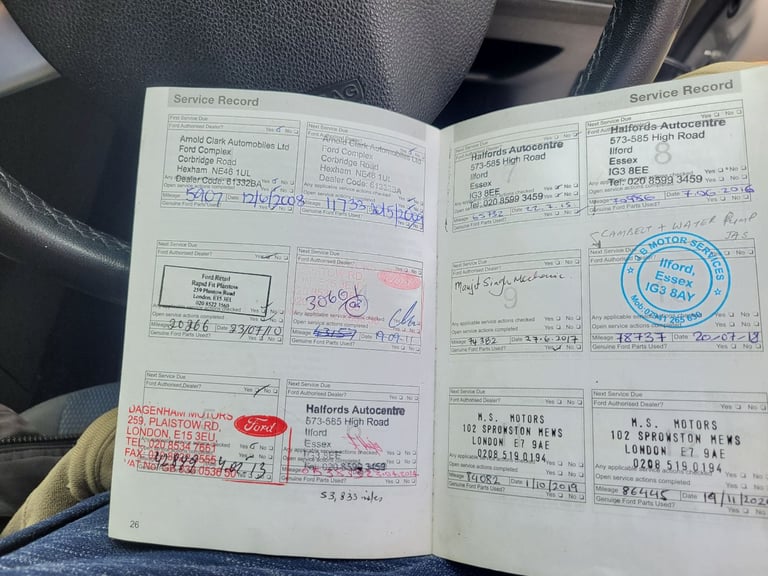 Service Record
First Service Due
Ford Authorised Dealer? Yes No
Arnold Clark Automobiles Ltd
Ford Complex
Corbridge Road
Hexham NE46 1UL
Dealer Code: 61332BA
Open service actions completed
Mileage 5907 Date 12/6/2008
Genuine Ford Parts Used? Yes No
Next Service Due
Ford Authorised Dealer? Yes No
Arnold Clark Automobiles Ltd
Ford Complex
Corbridge Road
Hexham NE46 1UL
Dealer Code: 61332BA
Any applicable service
Open service actions completed
Mileage 11733
Genuine Ford Parts Used? Yes No
Service Due
Ford Authorised Dealer? Yes No
Ford Retail
Rapid Fit Plaistow
259 Plaistow Road
London, E15 3EU
020 8522 3160
Any applicable service actions checked
Open service actions completed
Mileage 20366 Date 23/07/10
Genuine Ford Parts Used? Yes No
Next Service Due
Ford Authorised Dealer?
Ford
Any applicable service actions checked
Open service actions completed
Mileage Date 9.09.11
Genuine Ford Parts Used? Yes No
Next Service Due
Ford Authorised Dealer? Yes No
DAGENHAM MOTORS
259, PLAISTOW RD,
LONDON, E15 3EU
TEL: 020 8534 7661
Ford
Next Service Due
Ford Authorised Dealer? Yes No
Halfords Autocentre
573-585 High Road
Ilford
Essex
IG3 8EE
Tel: 020 8599 3459
Genuine Ford Parts Used? Yes No
53,833 miles
26
Service Record
Next Service Due
Ford Authorised Dealer? Yes No
Halfords Autocentre
573-585 High Road
Ilford
Essex
IG3 8EE
Tel: 020 8599 3459
Open service actions completed
Mileage Date
Genuine Ford Parts Used? Yes No
Next Service Due
Yes No
Halfords Autocentre
573-585 High Road
Ilford
Essex
IG3 8EE
Tel: 020 8599 3459
8
Mileage Date 7.06.2016
Genuine Ford Parts Used? Yes No
CAMBELT + WATER PUMP
Next Service Due
Ford Authorised Dealer? Yes No
Singh Mechanic.
9
Any applicable service actions checked
Open service actions completed
Mileage Date 27.6.2017
Genuine Ford Parts Used? Yes No
Next Service Due
Ford Authorised Dealer?
B MOTOR SERVICES
Ilford,
Essex
IG3 8AY
Open service actions completed
Mileage 78737 Date 20-07-18
Genuine Ford Parts Used? Yes No
Next Service Due
Ford Authorised Dealer? Yes No
M.S. MOTORS
102 SPROWSTON MEWS
LONDON E7 9AE
0208 519 0194
Open service actions completed
Mileage 84082 Date 1/10/2019
Genuine Ford Parts Used? Yes No
Next Service Due
Ford Authorised Dealer? Yes No
M.S. MOTORS
102 SPROWSTON MEWS
LONDON E7 9AE
0208 519 0194
Open service actions completed
Mileage 86445 Date
Genuine Ford Parts Used? Yes No